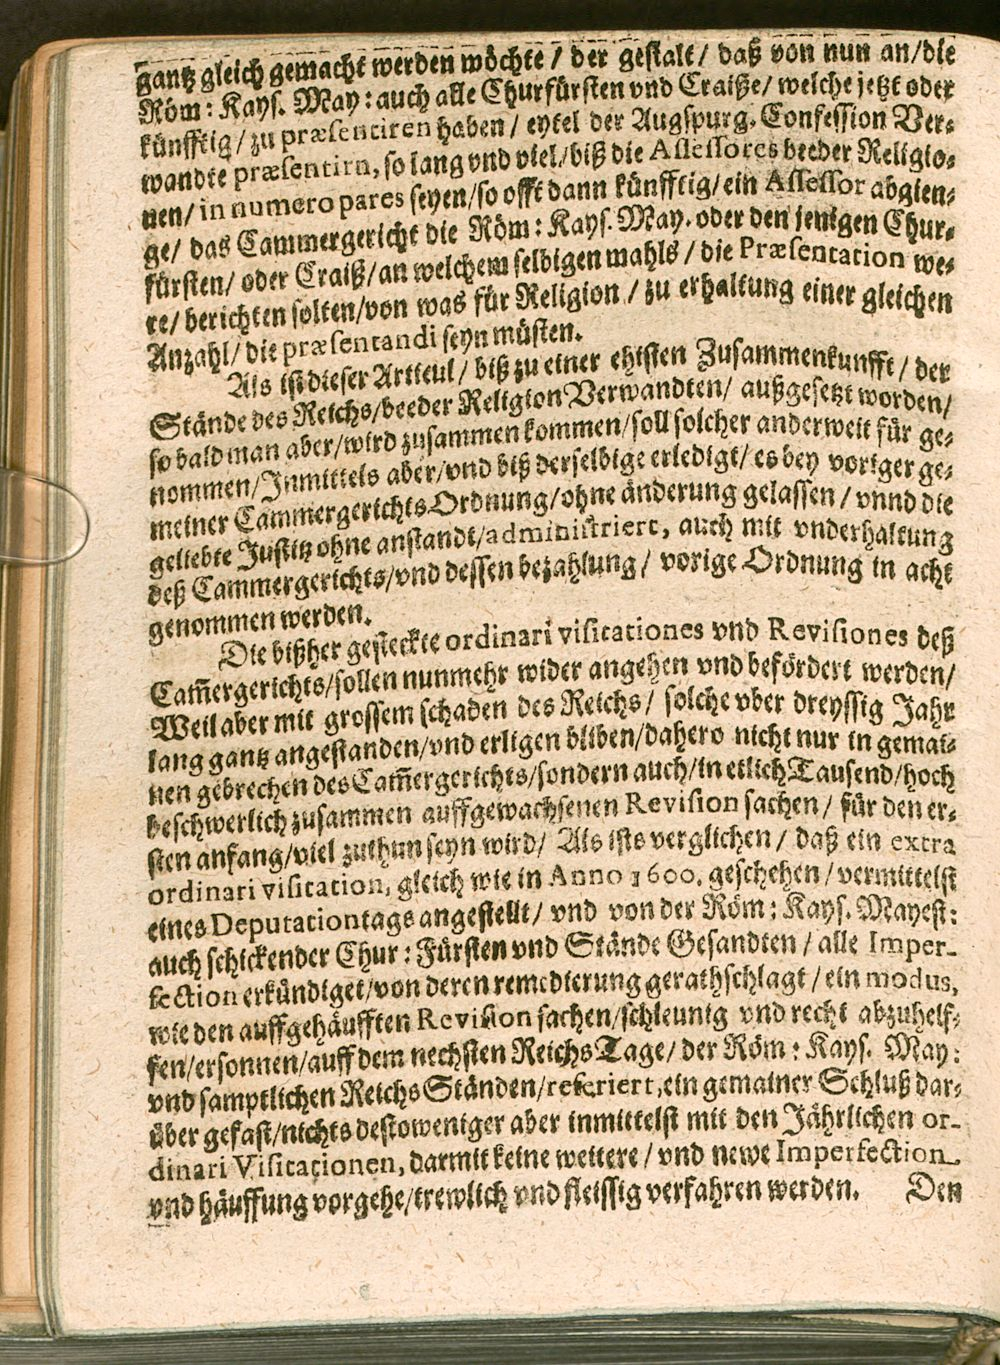 gantz gleich gemacht werden möchte / der gestalt / daß von nun an/die
Röm: Kays. May: auch alle Churfürsten vnd Craiße/ welche jetzt oder
künfftig / zu præsentiren haben / eytel der Augspurg. Confession Ver-
wandte præsentirn, so lang vnd viel/biß die Assessores beeder Religio-
nen/ in numero pares seyen/so offt dann künfftig/ein Assessor abgien-
ge/ das Cammergericht die Röm: Kays. May. oder den jenigen Chur-
fürsten/ oder Craiß/an welchem selbigen mahls / die Præsentation we-
re/ berichten solten/von was für Religion / zu erhaltung einer gleichen
Anzahl/ die præsentandi seyn müsten.
Als ist dieser Articul / biß zu einer ehisten Zusammenkunfft / der
Stände des Reichs/beeder Religion Verwandten/ außgesetzt worden/
so bald man aber/wird zusammen kommen/soll solcher anderweit für ge-
nommen/Inmittels aber/vnd biß derselbige erledigt/ es bey voriger ge-
meiner Cammergerichts Ordnung/ohne änderung gelassen / vnnd die
geliebte Justitz ohne anstandt/administriert, auch mit vnderhaltung
deß Cammergerichts/vnd dessen bezahlung / vorige Ordnung in acht
genommen werden.
Die bißher gesteckte ordinari visitationes vnd Revisiones deß
Cam̃ergerichts/sollen nunmehr wider angehen vnd befördert werden/
Weil aber mit grossem schaden des Reichs / solche vber dreyssig Jahr
lang gantz angestanden/vnd erligen bliben/dahero nicht nur in gemai-
nen gebrechen des Cam̃ergerichts/sondern auch/in etlich Tausend/hoch
beschwerlich zusammen auffgewachsenen Revision sachen / für den er-
sten anfang/viel zuthun seyn wird/ Als ists verglichen / daß ein extra
ordinari visitation, gleich wie in Anno 1600. geschehen / vermittelst
eines Deputationtags angestellt/ vnd von der Röm: Kays. Mayest:
auch schickender Chur: Fürsten vnd Stände Gesandten / alle Imper-
fection erkündiget/von deren remedierung gerathschlagt / ein modus,
wie den auffgehäufften Revision sachen/schleunig vnd recht abzuhelf-
fen/ersonnen/auff dem nechsten Reichs Tage/ der Röm: Kays. May:
vnd samptlichen Reichs Ständen/referiert, ein gemainer Schluß dar-
über gefast/nichts destoweniger aber inmittelst mit den Jährlichen or-
dinari Visitationen, darmit keine weitere / vnd newe Imperfection
vnd häuffung vorgehe/trewlich vnd fleissig verfahren werden. Den